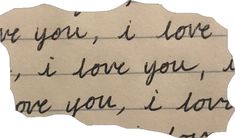 ve you, i love
, i love you, i
ove you, i lov